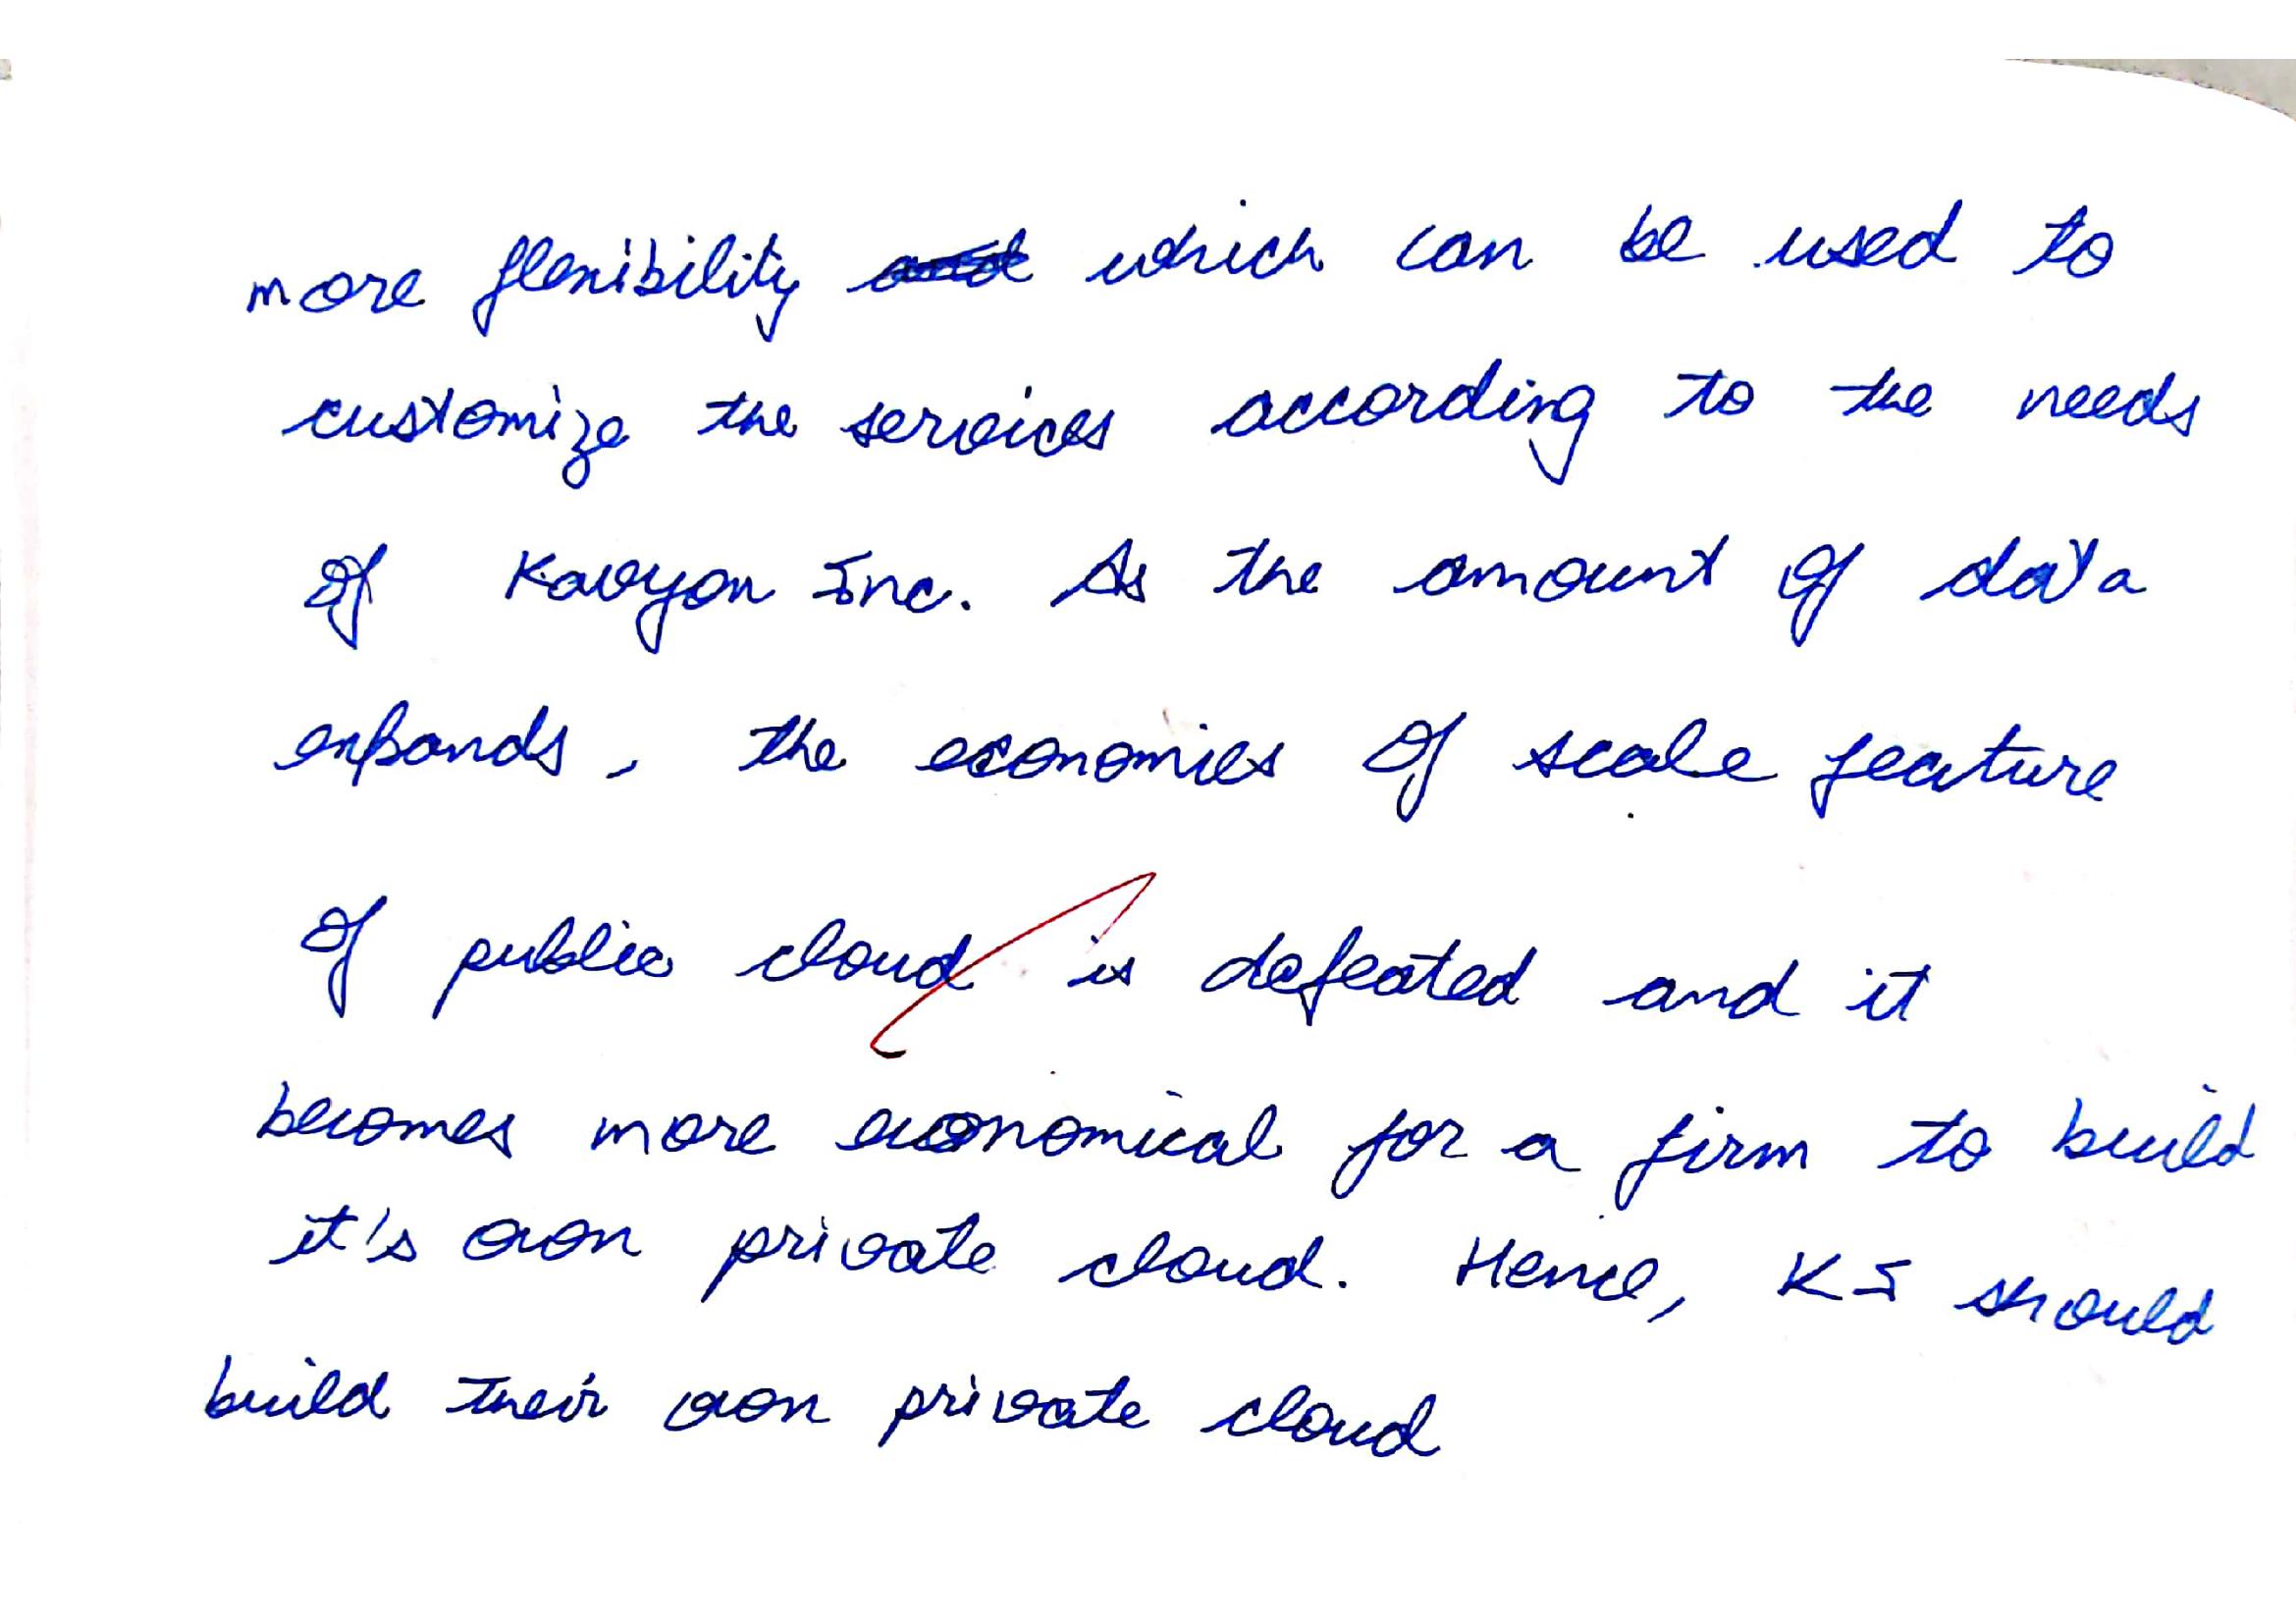 more flexibility which can be used to
customize the services according to the needs
of Kavyon Inc. As the amount of data
expands, the economies of scale feature
of public cloud is defeated and it
becomes more economical for a firm to build
it's own private cloud. Hence, KI should
build their own private cloud